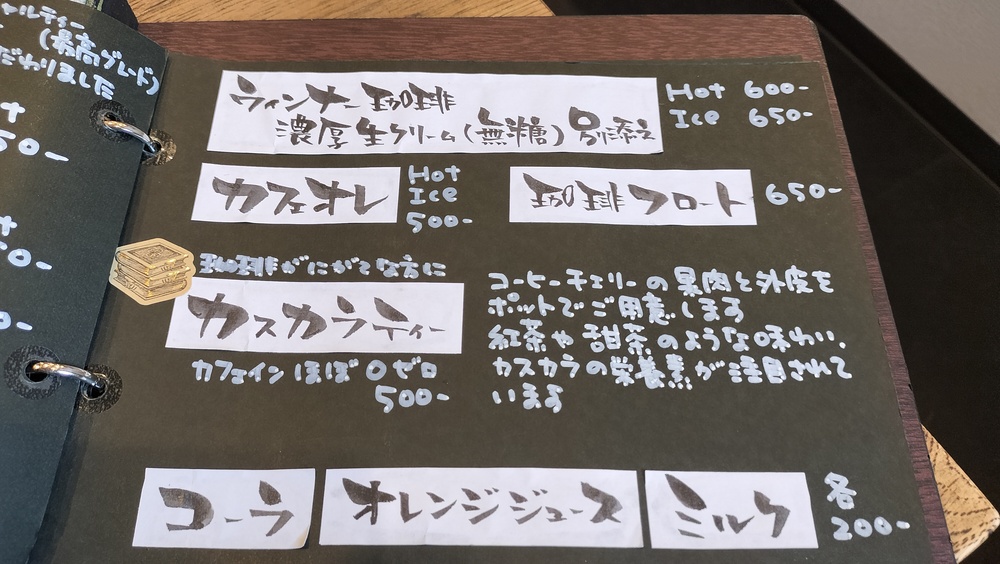 ャルティー
(最高グレード)
だわりました
50-
0-
ウィンナー珈琲
濃厚生クリーム(無糖)別添え
Hot 600-
Ice 650-
カフェオレ
Hot
Ice
500-
珈琲フロート
650-
珈琲がにがてな方に
カスカラティー
カフェインほぼ0ゼロ
500-
コーヒーチェリーの果肉と外皮を
ポットでご用意します
紅茶や甜茶のような味わい、
カスカラの栄養素が注目されて
います
コーラ
オレンジジュース
ミルク
各
200-